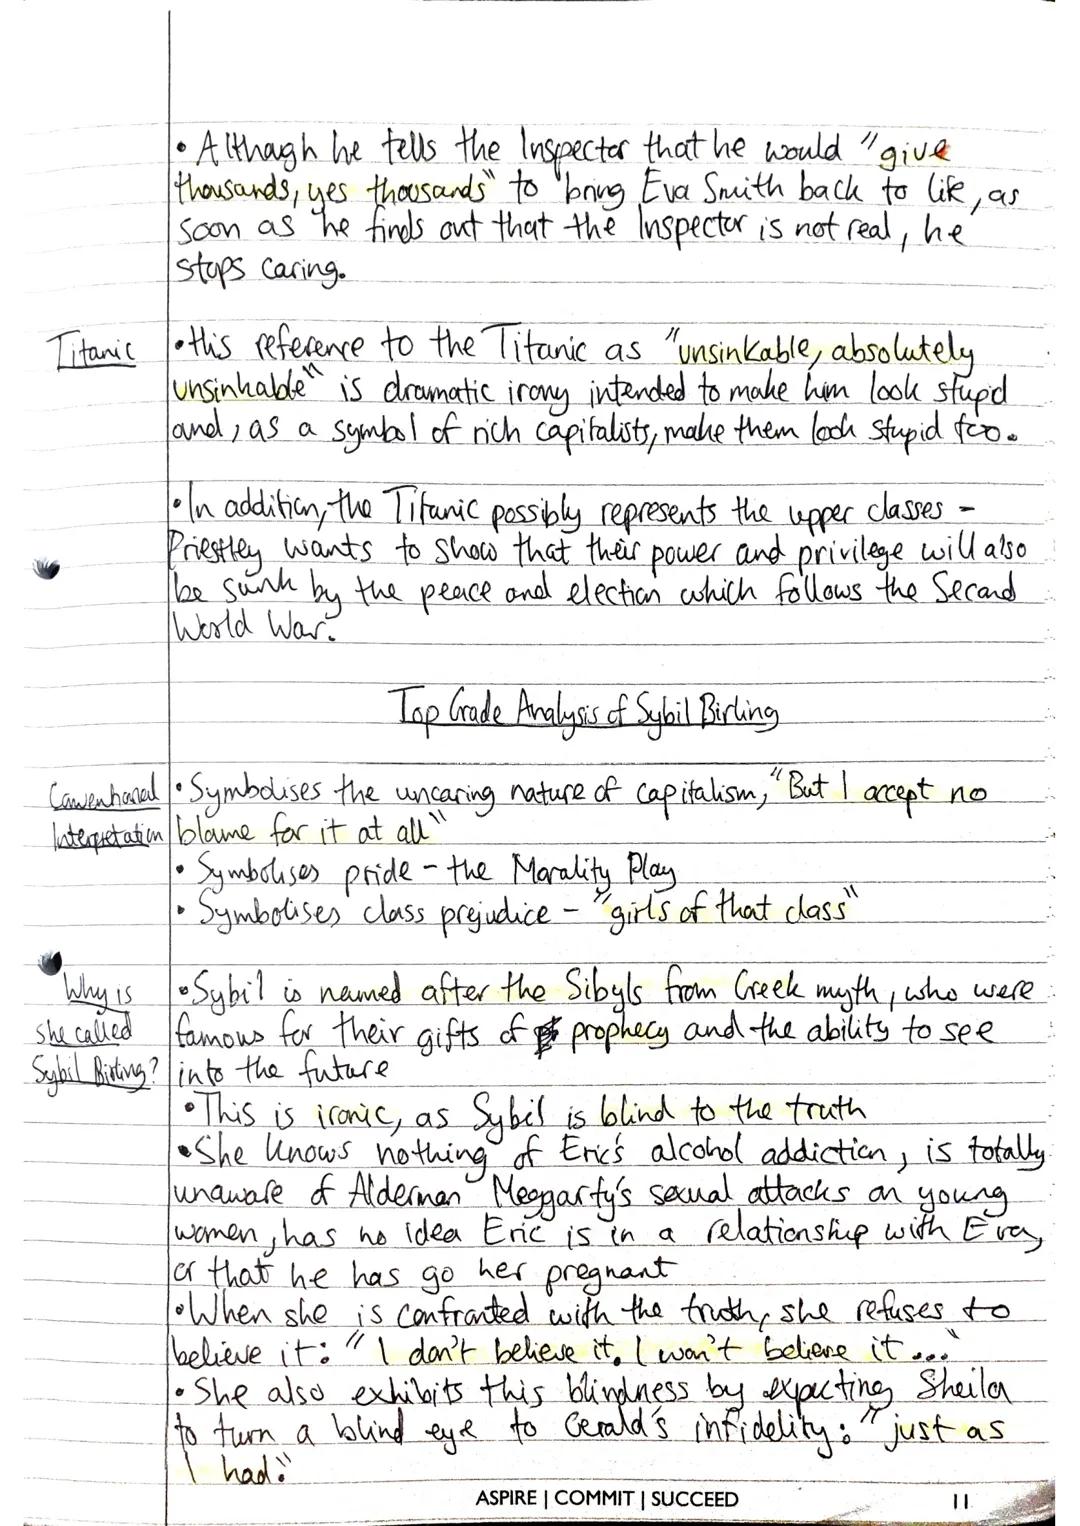 • Although he tells the Inspector that he would "give
thousands, yes thousands" to bring Eva Smith back to life, as
soon as he finds out that the Inspector is not real, he
stops caring.
Titanic
• His reference to the Titanic as "unsinkable, absolutely
unsinkable" is dramatic irony intended to make him look stupid
and, as a symbol of rich capitalists, make them look stupid too.
• In addition, the Titanic possibly represents the upper classes -
Priestley wants to show that their power and privilege will also
be sunk by the peace and election which follows the Second
World War.
Top Grade Analysis of Sybil Birling
Conventional
Interpretation
• Symbolises the uncaring nature of capitalism, "But I accept no
blame for it at all"
• Symbolises pride - the Morality Play
• Symbolises class prejudice - "girls of that class"
Why is
she called
Sybil Birling?
• Sybil is named after the Sibyls from Greek myth, who were
famous for their gifts of prophecy and the ability to see
into the future
• This is ironic, as Sybil is blind to the truth
• She knows nothing of Eric's alcohol addiction, is totally
unaware of Alderman Meggarty's sexual attacks on young
women, has no idea Eric is in a relationship with Eva,
or that he has go her pregnant
• When she is confronted with the truth, she refuses to
believe it: "I don't believe it. I won't believe it..."
• She also exhibits this blindness by expecting Sheila
to turn a blind eye to Gerald's infidelity: "just as
I had."
ASPIRE | COMMIT | SUCCEED
11